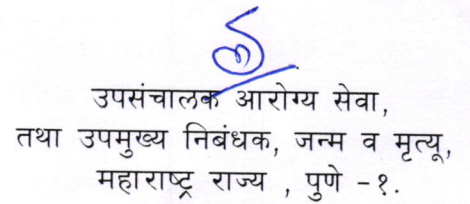 उपसंचालक आरोग्य सेवा,
तथा उपमुख्य निबंधक, जन्म व मृत्यू,
महाराष्ट्र राज्य , पुणे -१.